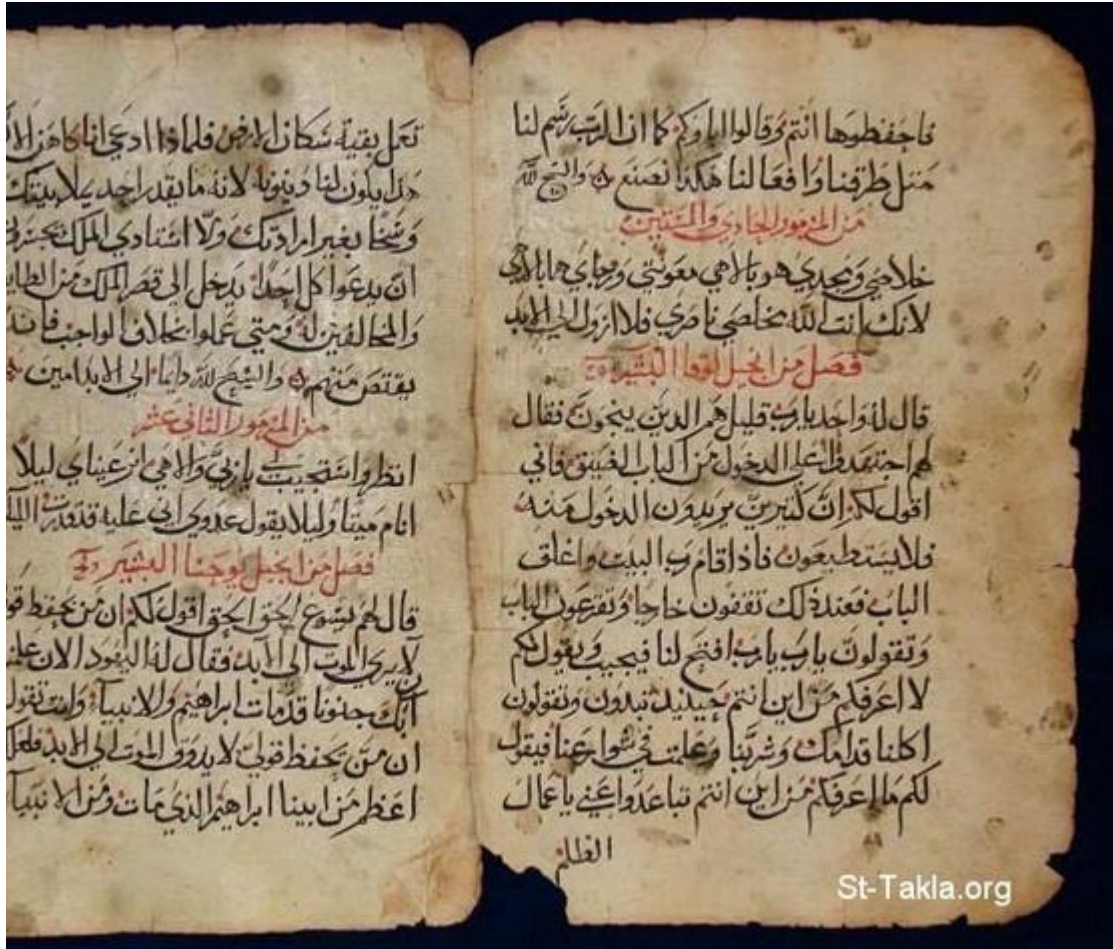 فاحفظوها انتم وقالوا اباوكم كما ان الرب رسم لنا
مثل طرقنا وافعالنا هكذا نصنع والسبح لله
من المزمور الحادي والستين
خلاصي ومجدي هو بالاهي معونتي ورجاي هما بالله
لانك انت الله مخلصي ناصري فلا ازول الي الابد
فصل من انجيل لوقا البشير
قال له واحد يا رب قليل هم الدين ينجون فقال
لهم اجتهدوا في الدخول من الباب الضيق فاني
اقول لكم ان كثيرين يريدون الدخول منه
فلا يستطيعون فاذا قام رب البيت واغلق
الباب فعند ذلك تقفون خارجا وتقرعون الباب
وتقولون يا رب يا رب افتح لنا فيجيب ويقول لكم
لا اعرفكم من اين انتم حينيذ تبدون وتقولون
اكلنا قدامك وشربنا وعلمت في شوارعنا فيقول
لكم ما اعرفكم من اين انتم تباعدوا عني يا عمال
الظلم
تعمل بقية سكان الارض فلماذا ادعي انا كاهن
يكون لنا دينونة لانه ما يقدر احد يملا بيتك
بغير ارادتك ولا الملك
ان يدعوا كل احد يدخل الى قصر الملك من
والمخالفين له ومتى عملوا بخلاف الواجب
يقتص منهم والسبح لله دايما الى الابد امين
من المزمور الثاني عشر
انظر واستجيب لي يا ربي والاهي انر عيناي ليلا
انام ميتا وليلا يقول عدوي اني عليه قد قدرت
فصل من انجيل يوحنا البشير
قال لهم يسوع الحق الحق اقول لكم ان من يحفظ
لا يري الموت الى الابد فقال له اليهود الان
انك جنونا قد مات ابراهيم والانبيآء وانت تقول
ان من يحفظ قولي لا يدوق الموت الى الابد
اعظم من ابينا ابراهيم الذي مات ومن الانبيآ
St-Takla.org